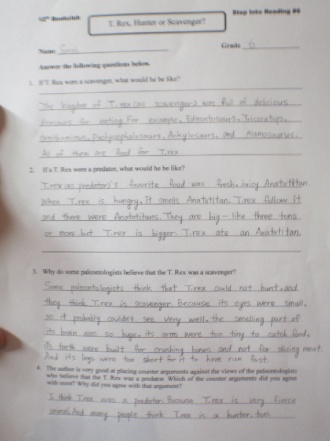 Step Into Reading #6
T. Rex, Hunter or Scavenger?
Name
Grade 6
Answer the following questions below.
1. If T. Rex were a scavenger, what would he be like?
The kingdom of T.rex(as scavenger) was full of delicious
dinosaurs for eating. For example, Edmontosaurus, Triceratops,
Pachycephalosaurs, Ankylosaurus, and Alamosaurus.
All of them are food for T.rex
2. If a T. Rex were a predator, what would he be like?
T.rex(as predator)'s favorite food was fresh, juicy Anatotitan
When T.rex is hungry, It smells Anatotitan. T.rex follow it
and there were Anatotitans. They are big - like three tons
or more but T.rex is bigger. T.rex ate an Anatotitan.
3. Why do some paleontologists believe that the T. Rex was a scavenger?
Some paleontologists think that T.rex could not hunt, and
they think T.rex is scavenger. Because its eyes were small,
so it probably couldn't see very well. the smelling part of
its brain was so huge, its arm were too tiny to catch food,
its teeth were built for crushing bones and not for slicing meat.
And its legs were too short for it to have run fast.
4. The author is very good at placing counter arguments against the views of the paleontologists
who believe that the T. Rex was a predator. Which of the counter arguments did you agree
with most? Why did you agree with that argument?
I think T.rex was a predator. Because T.rex is very fierce
animal. And many people think T.rex is a hunter, too.